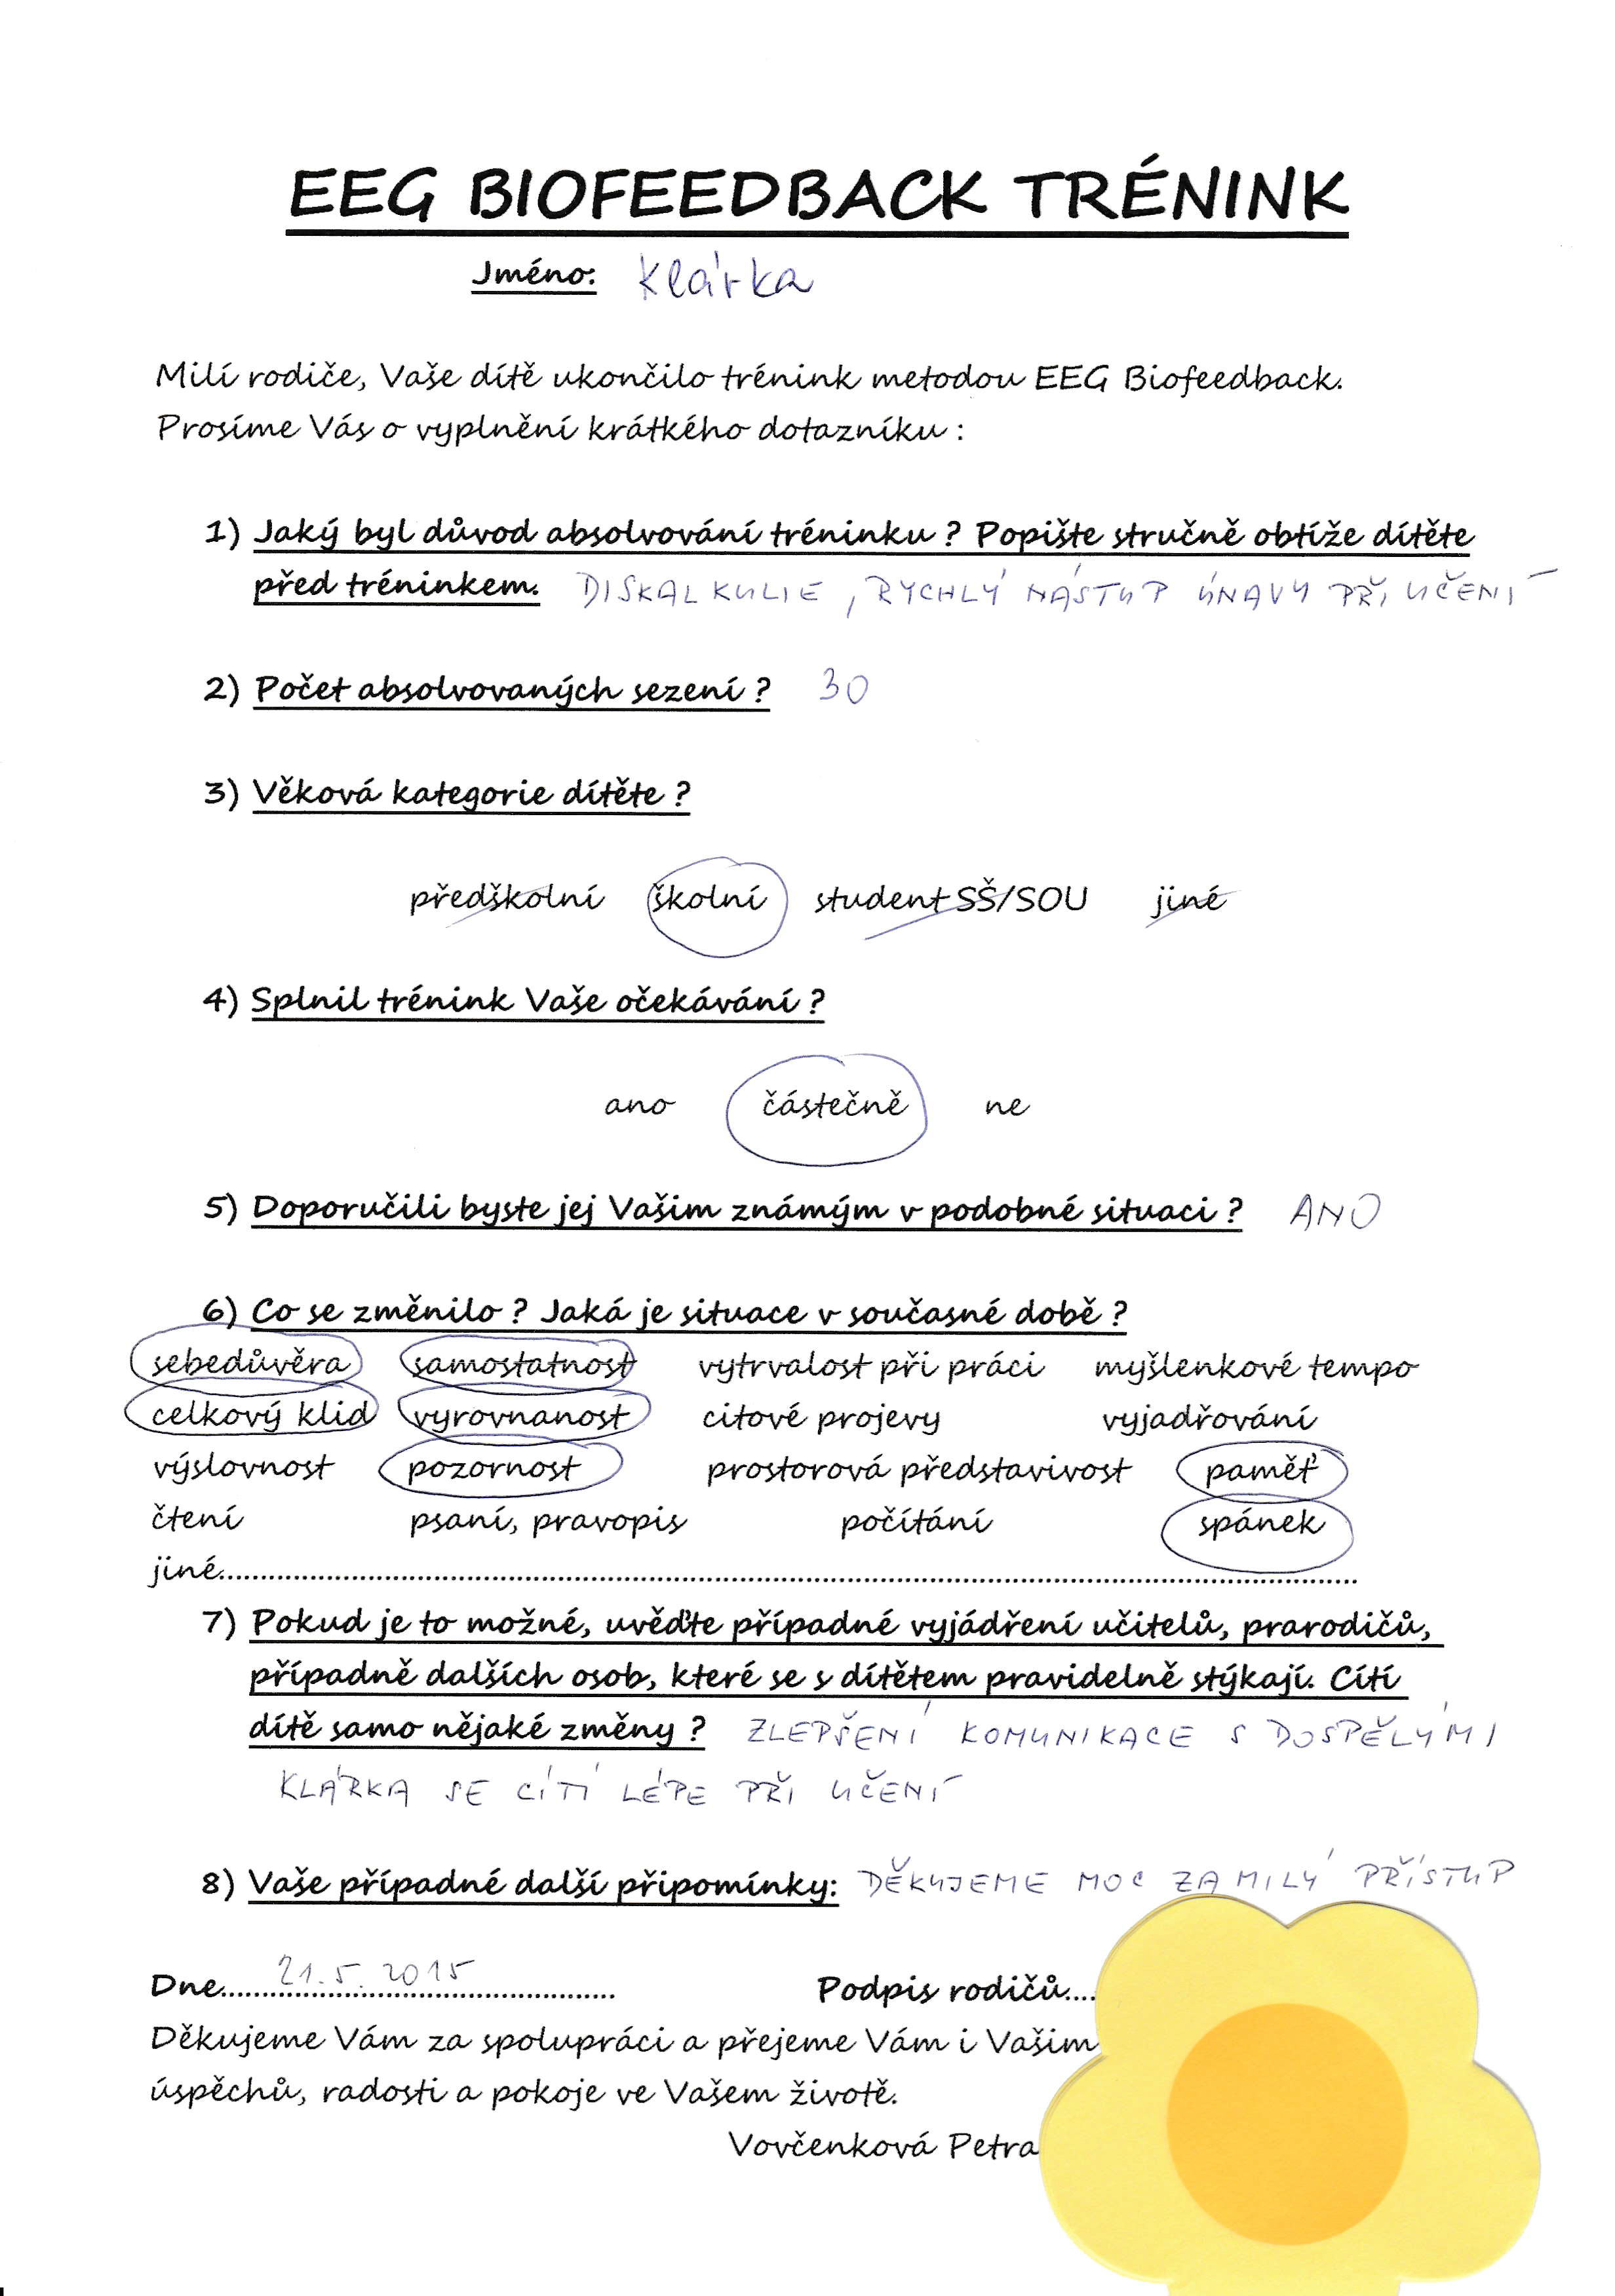 EEG BIOFEEDBACK TRÉNINK
Jméno: Klárka
Milí rodiče, Vaše dítě ukončilo trénink metodou EEG Biofeedback.
Prosíme Vás o vyplnění krátkého dotazníku :
1) Jaký byl důvod absolvování tréninku ? Popište stručně obtíže dítěte
před tréninkem. DISKALKULIE, RYCHLÝ NÁSTUP ÚNAVY PŘI UČENÍ
2) Počet absolvovaných sezení ? 30
3) Věková kategorie dítěte ?
předškolní školní student SŠ/SOU jiné
4) Splnil trénink Vaše očekávání ?
ano částečně ne
5) Doporučili byste jej Vašim známým v podobné situaci ? ANO
6) Co se změnilo ? Jaká je situace v současné době ?
sebedůvěra samostatnost vytrvalost při práci myšlenkové tempo
celkový klid vyrovnanost citové projevy vyjadřování
výslovnost pozornost prostorová představivost paměť
čtení psaní, pravopis počítání spánek
jiné........................................................................
7) Pokud je to možné, uvěďte případné vyjádření učitelů, prarodičů,
případně dalších osob, které se s dítětem pravidelně stýkají. Cítí
dítě samo nějaké změny ? ZLEPŠENÍ KOMUNIKACE S DOSPĚLÝMI
KLÁRKA SE CÍTÍ LÉPE PŘI UČENÍ
8) Vaše případné další připomínky: DĚKUJEME MOC ZA MILÝ PŘÍSTUP
Dne....21.5.2015.... Podpis rodičů....
Děkujeme Vám za spolupráci a přejeme Vám i Vašim
úspěchů, radosti a pokoje ve Vašem životě.
Vovčenková Petra